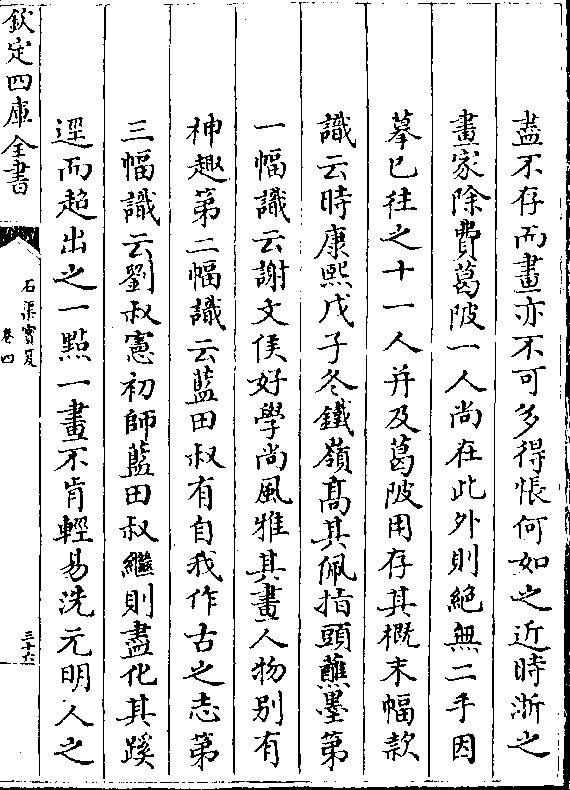 盡不存而畫亦不可多得悵何如之近時浙之
畫家除費葛陂一人尚在此外則絶無二手因
摹已往之十一人并及葛陂用存其概末幅款
識云時康熙戊子冬鐵嶺髙其佩指頭蘸墨第
一幅識云謝文侯好學尚風雅其畫人物别有
神趣第二幅識云藍田叔有自我作古之志第
三幅識云劉叔憲初師藍田叔繼則盡化其蹊
逕而超出之一點一畫不肯輕易洗元明人之
欽定四庫全書
石渠寳笈
卷四
三十六